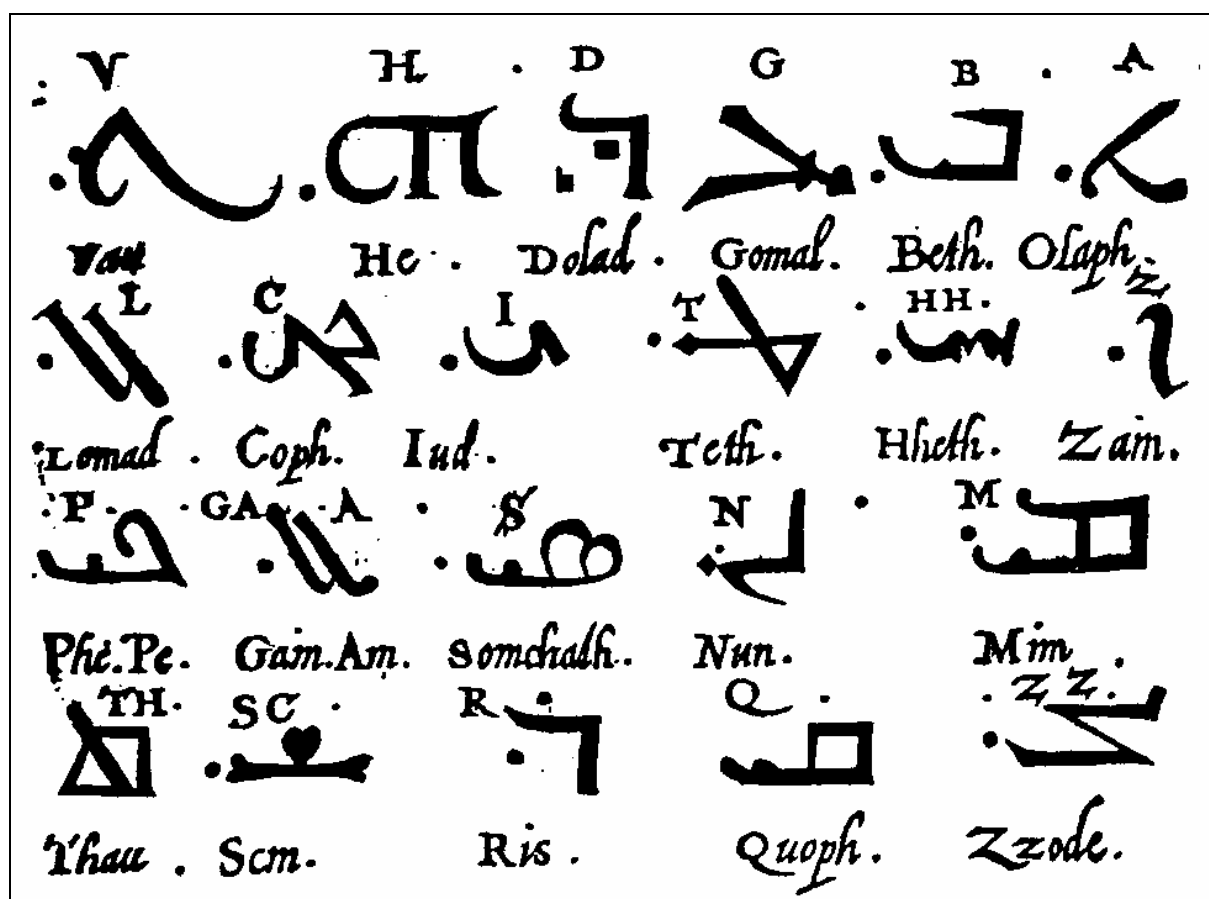 V H . D G B . A
ܐ ܒ ܓ ܕ ܗ ܘ
Vau He . Dolad . Gomal. Beth. Olaph.
L C I T HH . Z
ܙ ܚ ܛ ܝ ܟ ܠ
Lomad . Coph. Iud . Teth . Hheth . Zain.
P . GA . A S N M
ܡ ܢ ܣ ܥ ܦ
Phe.Pe. Gain.Ain. Somchath. Nun. Mim .
TH . SC R Q . ZZ.
ܨ ܩ ܪ ܫ ܬ
Thau . Scin. Ris . Quoph. Zzode.